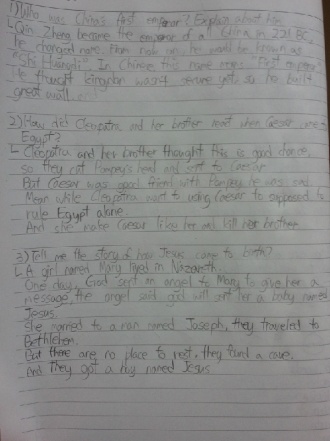 1) Who was China's first emperor? Explain about him.
└ Qin Zheng became the emperor of all China in 221 BC.
he changed name. From now on, he would be known as
"Shi Huangdi" In Chinese, this name means "First emperor"
He thought kingdom wasn't secure yet, so he built
great wall.
2) How did Cleopatra and her brother react when Caesar came
Egypt?
└ Cleopatra and her brother thought this is good chance,
so they cut Pompey's head and sent to Caesar
But Caesar was good friend with Pompey he was sad
Mean while Cleopatra want to using Caesar to supposed to
rule Egypt alone.
And she make Caesar like her and kill her brother
3) Tell me the story of how Jesus came to birth?
└ A girl named Mary lived in Nazareth.
One day, God sent an angel to Mary to give her a
message, the angel said god will sent her a baby named
Jesus.
She married to a man named Joseph, they traveled to
Bethlehem.
But there are no place to rest, they found a cave.
And they got a boy named Jesus